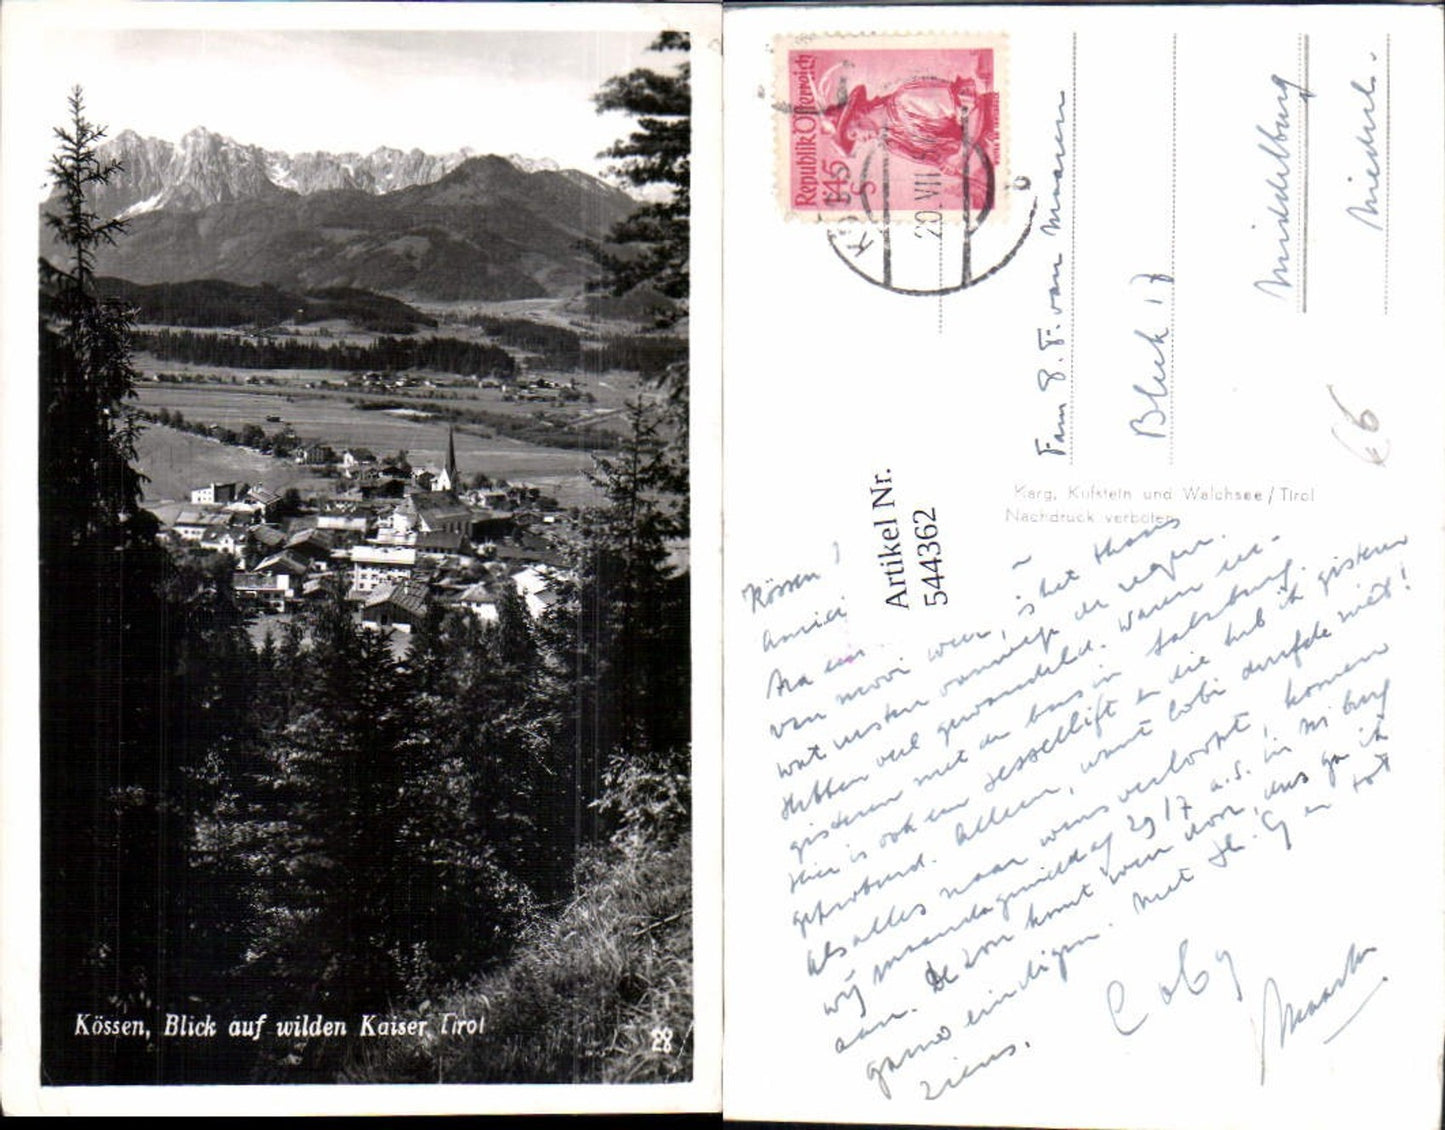 Kössen, Blick auf wilden Kaiser, Tirol
28
Republik Österreich
1·45
S
20. VII
Fam J. F. van Maaren
Blek 17
Middelburg
Niederl.
66
Artikel Nr.
544362
Karg, Kufstein und Walchsee / Tirol
Nachdruck verboten
Kössen
Na een
van mooi weer, is het thans
wat vanwege de regen.
Hebben veel gewandeld. Waren
gisteren met de bus in Salzburg.
Hier is ook een Sessellift en die heb ik gisteren
geprobeerd. Alleen, want Cobi durfde niet!
Als alles naar wens verloopt, komen
wij maandagmiddag 29/7 a.s. in Mi burg
aan. De zon komt weer door, dus ga ik
gauw eindigen. Met en tot
ziens.
Coby
Maarten